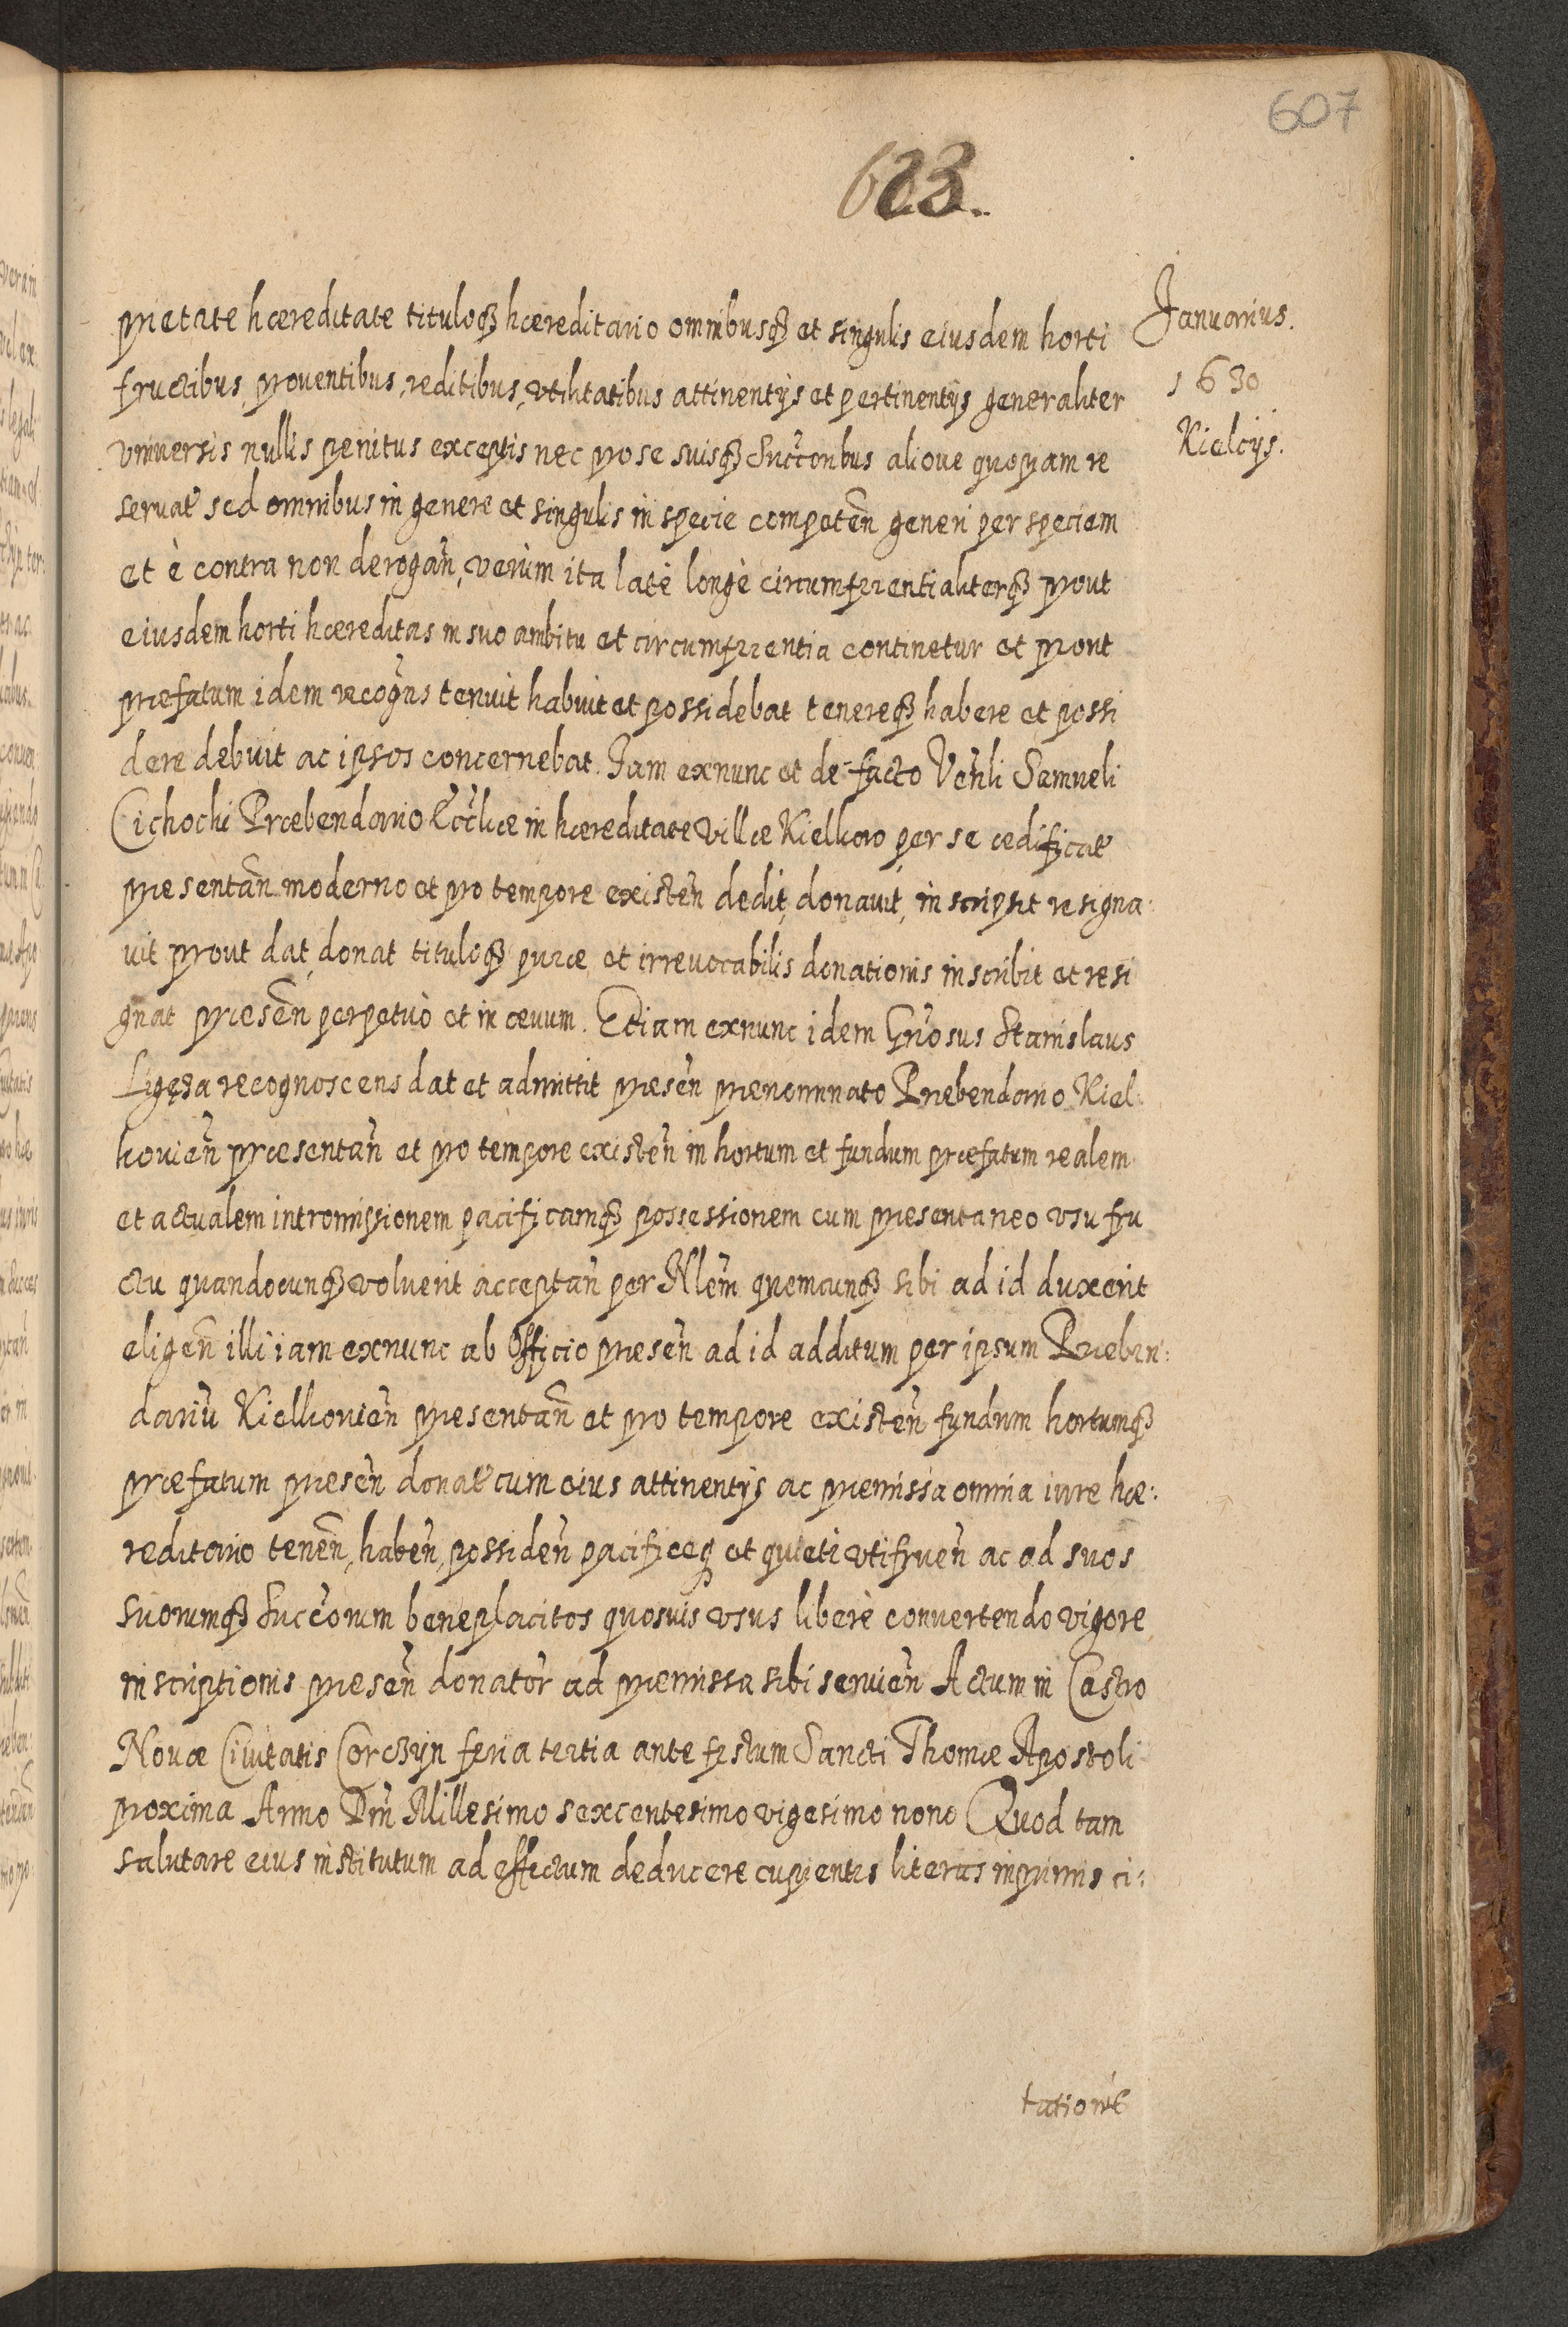 607
623.
Januarius.
1630
Kielcijs.
prietate hæreditate tituloq3 hæreditario omnibusq3 et singulis eiusdem horti
fructibus, prouentibus, reditibus, vtilitatibus attinentijs et pertinentijs generaliter
vniuersis nullis penitus exceptis nec pro se suisq3 Succoribus alioue quopiam re
seruat sed omnibus in genere et singulis in specie competeñ generi per speciem
et è contra non derogañ, verùm ita latè longè circumferentialiterq3 prout
eiusdem horti hæreditas in suo ambitu et circumferentia continetur et prout
præfatum idem recogñs tenuit habuit et possidebat tenereq3 habere et possi
dere debuit ac ipsos concernebat. Jam exnunc et de-facto Veñli Samueli
Cichochi Præbendario Eccliæ in hæreditate villæ Kielkow per se ædificat
presentañ moderno et pro tempore existeñ dedit, donauit, inscripsit resigna:
uit prout dat, donat tituloq3 puræ et irreuocabilis donationis inscribit et resi
gnat preseñ perpetuò et in æuum. Etiam exnunc idem Gñosus Stanislaus
Ligęza recognoscens dat et admittit preseñ prenominato Præbendario Kiel:
kouieñ præsentañ et pro tempore existeñ in hortum et fundum præfatum realem
et actualem intromissionem pacificamq3 possessionem cum presentaneo vsu fru
ctu quandocunq3 voluerit acceptañ per Mlem̃ quemcunq3 sibi ad id duxerit
eligeñ illi iam exnunc ab Officio preseñ ad id additum per ipsum Præben:
dariũ Kielkouieñ presentañ et pro tempore existeñ fundum hortumq3
præfatum preseñ donat cum eius attinentijs ac premissa omnia iure hæ:
reditario teneñ, habeñ, possideñ pacificeq3 et quieti vtifrueñ ac ad suos
suorumq3 Succorum beneplacitos quosuis vsus liberè conuertendo vigore
inscriptionis preseñ donator̃ ad premissa sibi seruieñ Actum in Castro
Nouæ Ciuitatis Corczyn feria tertia ante festum Sancti Thomæ Apostoli
proxima Anno Dñi Millesimo sexcentesimo vigesimo nono Quod tam
salutare eius institutum ad effectum deducere cupientes literas inprimis ci:
tationis